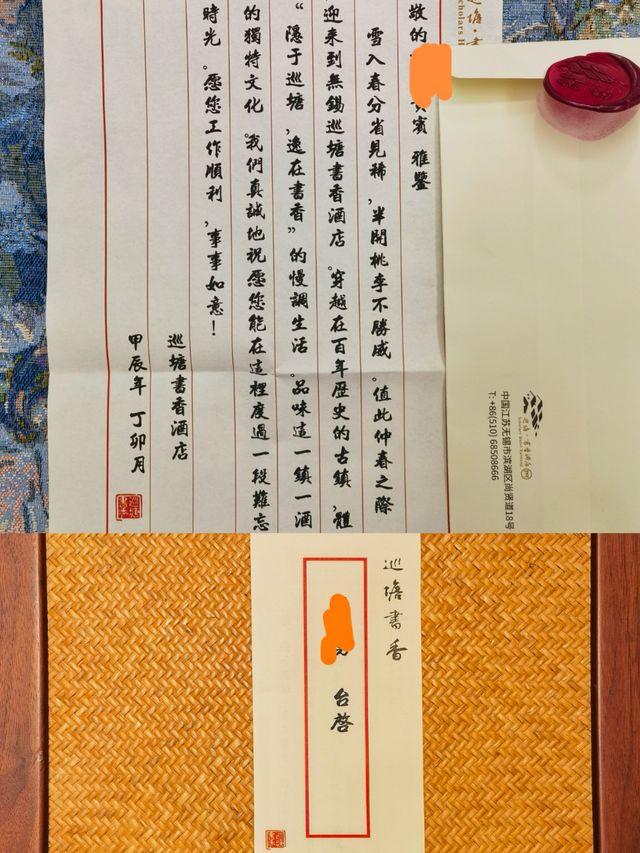 敬的
貴賓 雅鑒
雪入春分省見稀,半開桃李不勝威。值此仲春之際
迎來到無錫巡塘書香酒店。穿越在百年歷史的古鎮,體
“隱于巡塘,逸在書香”的慢調生活。品味這一鎮一酒
的獨特文化。我們真誠地祝愿您能在這裡度過一段難忘
時光。愿您工作順利,事事如意!
巡塘書香酒店
甲辰年 丁卯月
巡塘·書
cholars H
中国江苏无锡市滨湖区尚贤道18号
T: +86(510) 68508666
巡塘書香
台啓